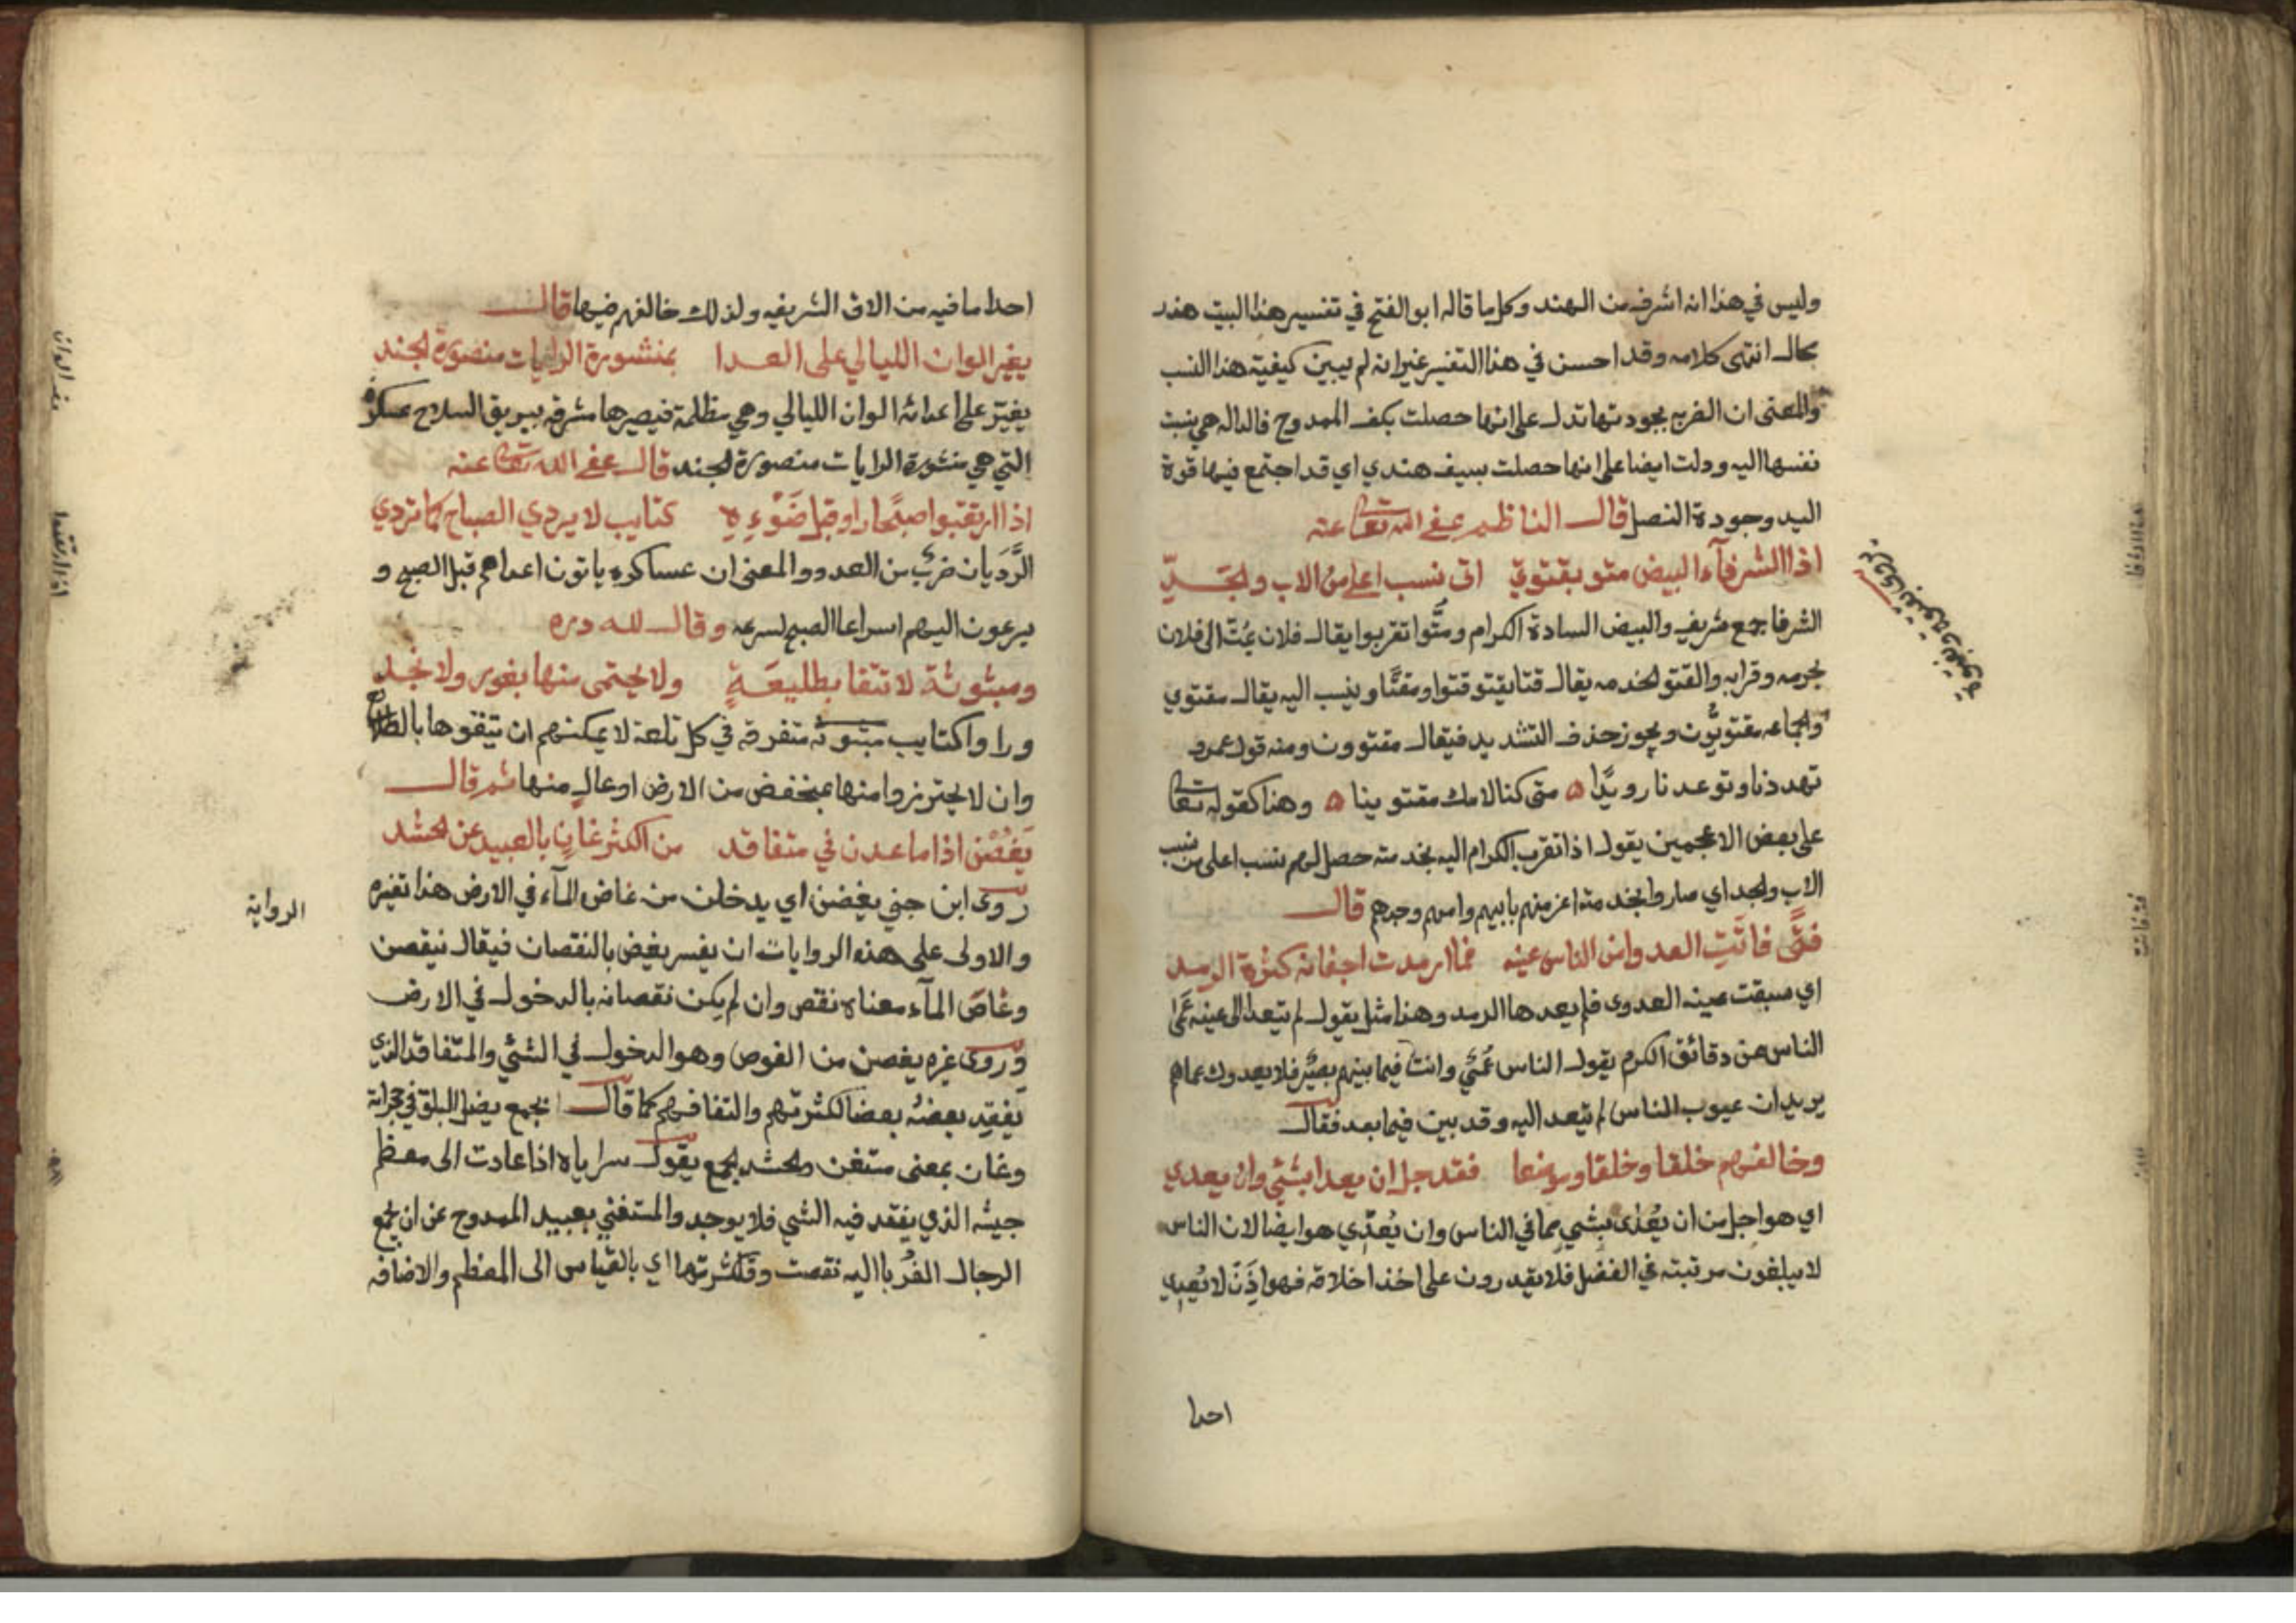 وليس في هذا انه اشرف من الهند وكل ما قاله ابو الفتح في تفسير هذا البيت هذر
محال انتهى كلامه وقد احسن في هذا التفسير غير انه لم يبين كيفية هذا النسب
والمعنى ان الضربه بجودتها تدل على انها حصلت بكف الممدوح فالداله هي بنسبت
نفسها اليه ودلت ايضا على انها حصلت بسيف هندي اي قد اجتمع فيها قوة
اليد وجودة النصل قال الناظم عفى الله تعالى عنه
اذا الشرفآء البيض متو بقتوي اتى نسب اعلى من الاب والجَدِّ
الشرفا جمع شريف والبيض السادة الكرام ومتُّوا تقربوا يقال فلان يمُتّ الى فلان
بحرمه وقرابه والقتو الخدمه يقال قتا يقتو قتوا ومقتًا وينسب اليه يقال مقتوي
والجماعه مقتويُّون ويجوز حذف التشديد فيقال مقتوون ومنه قول عمرو
تهددنا وتوعدنا رويدًا ۵ متى كنا لامك مقتوينا ۵ وهذا كقوله تعالى
على بعض الاعجمين يقول اذا تقرب الكرام اليه بخدمته حصل لهم نسب اعلى من نسب
الاب والجد اي صاروا بخدمته اعز منهم بابيهم وامهم وجدهم قال
فتًى فاتَتِ العدوى من الناس عينه فما ارمدت اجفانه كثرة الرمد
اي سبقت عينه العدوى فلم يعدها الرمد وهذا مثل يقول لم يتعد الى عينه عَمَى
الناس عن دقائق الكرم يقول الناس عُمْيٌ وانت فيما بينهم بصير فلا يعدوك عماهم
يريد ان عيوب الناس لم تتعد اليه وقد بين فيما بعد فقال
وخالفهم خلقا وخلقا وموضعا فقد جل ان يعدا بشيْ وان يعدي
اي هو اجل من ان يُعْدَى بشي مما في الناس وان يُعْدِي هو ايضا لان الناس
لا يبلغون مرتبته في الفضل فلا يقدرون على اخذ اخلاقه فهو اذَنْ لا يُعدِي
احدا
احدا ما فيه من الاخلاق الشريفه ولذلك خالفهم فيها قال
يغير الوان الليالي على العدا بمنشورة الرايات منصورة الجند
يغيّر على اعدائه الوان الليالي وهي مظلمة فيصيرها مشرقه ببريق السلاح عسكره
التي هي منشورة الرايات منصورة الجند قال عفى الله تعالى عنه
اذا ارتقبوا صبحًا راوا قبل ضَوْءِهِ كتايب لا يردي الصباح كما تردي
الرَّدَيان ضربٌ من العدو والمعنى ان عساكره ياتون اعداهم قبل الصبح و
يسرعون اليهم اسراعا الصبح لسرعه وقال لله دره
ومبثوثة لا تتقا بطليعَةٍ ولا يحتمى منها بغور ولا نجد
وراوا كتايب مبثوثه متفرقه في كل تلعة لا يمكنهم ان يتقوها بالطلايع
وان لا يحترزوا منها بمنخفض من الارض او عالٍ منها ثم قال
يَغُضْنَ اذا ما عدن في متفاقد من الكثر غانٍ بالعبيد عن الحشد
روى ابن جني يغضن اي يدخلن من غاض المآء في الارض هذا تفسيره
والاولى على هذه الروايات ان يفسر يغض بالنقصان فيقال ينقصن الرواية
وغاض المآء معناه نقص وان لم يكن نقصانه بالدخول في الارض
وروى غيره يغصن من الغوص وهو الدخول في الشيْ والمتفاقد الذي
يَفقِد بعضهُ بعضا لكثرتهم والتفافهم كما قال بجمع يضل البلق في حجراته
وغان بمعنى مستغن والحشد الجمع يقول سراياه اذا عادت الى معظم
جيشه الذي يفقد فيه الشي فلا يوجد والمستغني بعبيد الممدوح عن ان يجمع
الرجال الغُربا اليه نقصت وقلّت كثرتها اي بالقياس الى المعظم والاضافه